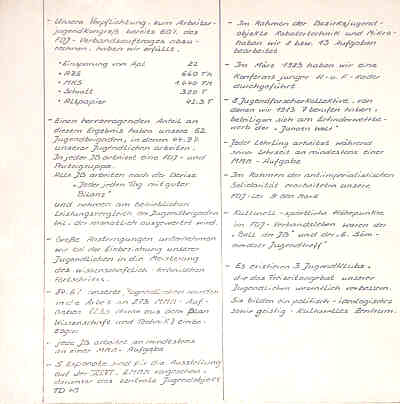 - Unsere Verpflichtung, zum Arbeiter-
jugendkongreß bereits 60% des
FDJ-Verbandsauftrages abzu-
rechnen, haben wir erfüllt.
• Einsparung von Apl 22
• ABS 660 TM
• MKS 1.640 TM
• Schrott 320 T
• Altpapier 41,3 T
- Einen hervorragenden Anteil an
diesem Ergebnis haben unsere 62
Jugendbrigaden, in denen
unserer Jugendlichen arbeiten.
In jeder JB arbeitet eine FDJ- und
Parteigruppe.
Alle JB arbeiten nach der Devise
"Jeder jeden Tag mit guter
Bilanz"
und nehmen am betrieblichen
Leistungsvergleich der Jugendbrigaden
teil, der monatlich ausgewertet wird.
- Große Anstrengungen unternehmen
wir bei der Einbeziehung unserer
Jugendlichen in die Meisterung
des wissenschaftlich-technischen
Fortschritts.
- unserer Jugendlichen wurden
in die Arbeit an 273 MMM-Auf-
gaben aus dem Plan
Wissenschaft und Technik) einbe-
zogen
- jede JB arbeitet an mindestens
an einer MMM-Aufgabe
- 5 Exponate sind für die Ausstellung
auf der ZMMM vorgesehen,
darunter das zentrale Jugendobjekt
- Im Rahmen der Bezirksjugend-
objekte Robotertechnik und Mikro-
haben wir 8 bzw. 13 Aufgaben
bearbeitet
- Im März 1983 haben wir eine
Konferenz junger R.- u. F.-Kader
durchgeführt
- 8 Jugendforscherkollektive, von
denen wir 1983 7 berufen haben,
beteiligen sich am Erfinderwettbe-
werb der "Jungen Welt"
- Jeder Lehrling arbeitet während
seiner Lehrzeit an mindestens einer
MMM-Aufgabe
- Im Rahmen der antiimperialistischen
Solidarität erarbeiteten unsere
FDJ-ler Mark
- Kulturell-sportliche Höhepunkte
im FDJ-Verbandsleben waren der
"Ball der JB" und der
- Es existieren 3 Jugendklubs,
die das Freizeitangebot unserer
Jugendlichen wesentlich verbessern.
Sie bilden ein politisch-ideologisches
sowie geistig-kulturelles Zentrum.